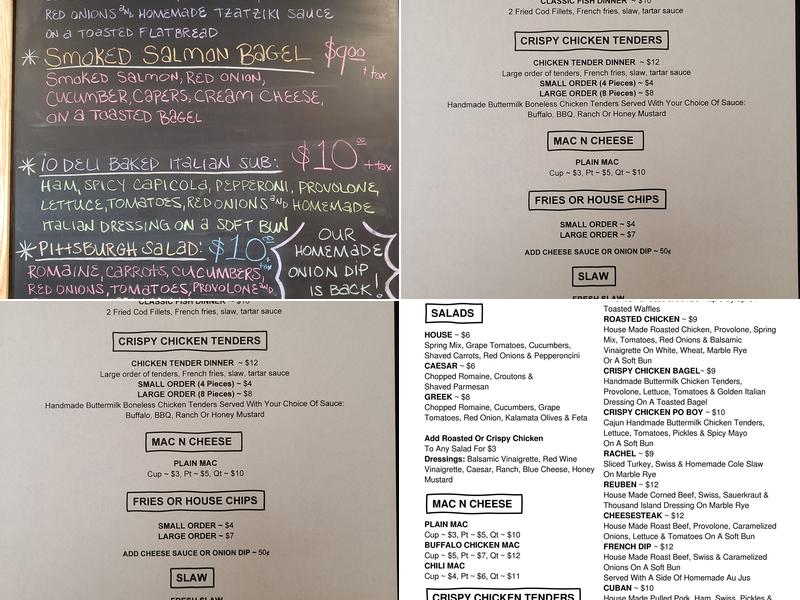 RED ONIONS AND HOMEMADE TZATZIKI SAUCE
ON A TOASTED FLATBREAD
* SMOKED SALMON BAGEL $9.00 + tax
SMOKED SALMON, RED ONION,
CUCUMBER, CAPERS, CREAM CHEESE,
ON A TOASTED BAGEL
* iO DELI BAKED ITALIAN SUB: $10.00 + tax
HAM, SPICY CAPICOLA, PEPPERONI, PROVOLONE,
LETTUCE, TOMATOES, RED ONIONS AND HOMEMADE
ITALIAN DRESSING ON A SOFT BUN
* PITTSBURGH SALAD: $10.00 tax
ROMAINE, CARROTS, CUCUMBERS,
RED ONIONS, TOMATOES, PROVOLONE AND
OUR
HOMEMADE
ONION DIP
IS BACK!
CLASSIC FISH DINNER ~ $10
2 Fried Cod Fillets, French fries, slaw, tartar sauce
CRISPY CHICKEN TENDERS
CHICKEN TENDER DINNER ~ $12
Large order of tenders, French fries, slaw, tartar sauce
SMALL ORDER (4 Pieces) ~ $4
LARGE ORDER (8 Pieces) ~ $8
Handmade Buttermilk Boneless Chicken Tenders Served With Your Choice Of Sauce:
Buffalo, BBQ, Ranch Or Honey Mustard
MAC N CHEESE
PLAIN MAC
Cup ~ $3, Pt ~ $5, Qt ~ $10
FRIES OR HOUSE CHIPS
SMALL ORDER ~ $4
LARGE ORDER ~ $7
ADD CHEESE SAUCE OR ONION DIP ~ 50¢
SLAW
FRESH SLAW
CLASSIC FISH DINNER ~ $10
2 Fried Cod Fillets, French fries, slaw, tartar sauce
CRISPY CHICKEN TENDERS
CHICKEN TENDER DINNER ~ $12
Large order of tenders, French fries, slaw, tartar sauce
SMALL ORDER (4 Pieces) ~ $4
LARGE ORDER (8 Pieces) ~ $8
Handmade Buttermilk Boneless Chicken Tenders Served With Your Choice Of Sauce:
Buffalo, BBQ, Ranch Or Honey Mustard
MAC N CHEESE
PLAIN MAC
Cup ~ $3, Pt ~ $5, Qt ~ $10
FRIES OR HOUSE CHIPS
SMALL ORDER ~ $4
LARGE ORDER ~ $7
ADD CHEESE SAUCE OR ONION DIP ~ 50¢
SLAW
FRESH SLAW
SALADS
HOUSE ~ $6
Spring Mix, Grape Tomatoes, Cucumbers,
Shaved Carrots, Red Onions & Pepperoncini
CAESAR ~ $6
Chopped Romaine, Croutons &
Shaved Parmesan
GREEK ~ $8
Chopped Romaine, Cucumbers, Grape
Tomatoes, Red Onion, Kalamata Olives & Feta
Add Roasted Or Crispy Chicken
To Any Salad For $3
Dressings: Balsamic Vinaigrette, Red Wine
Vinaigrette, Caesar, Ranch, Blue Cheese, Honey
Mustard
MAC N CHEESE
PLAIN MAC
Cup ~ $3, Pt ~ $5, Qt ~ $10
BUFFALO CHICKEN MAC
Cup ~ $5, Pt ~ $7, Qt ~ $12
CHILI MAC
Cup ~ $4, Pt ~ $6, Qt ~ $11
CRISPY CHICKEN TENDERS
Toasted Waffles
ROASTED CHICKEN ~ $9
House Made Roasted Chicken, Provolone, Spring
Mix, Tomatoes, Red Onions & Balsamic
Vinaigrette On White, Wheat, Marble Rye
Or A Soft Bun
CRISPY CHICKEN BAGEL~ $9
Handmade Buttermilk Chicken Tenders,
Provolone, Lettuce, Tomatoes & Golden Italian
Dressing On A Toasted Bagel
CRISPY CHICKEN PO BOY ~ $10
Cajun Handmade Buttermilk Chicken Tenders,
Lettuce, Tomatoes, Pickles & Spicy Mayo
On A Soft Bun
RACHEL ~ $9
Sliced Turkey, Swiss & Homemade Cole Slaw
On Marble Rye
REUBEN ~ $12
House Made Corned Beef, Swiss, Sauerkraut &
Thousand Island Dressing On Marble Rye
CHEESESTEAK ~ $12
House Made Roast Beef, Provolone, Caramelized
Onions, Lettuce & Tomatoes On A Soft Bun
FRENCH DIP ~ $12
House Made Roast Beef, Swiss & Caramelized
Onions On A Soft Bun
Served With A Side Of Homemade Au Jus
CUBAN ~ $10
House Made Pulled Pork, Ham, Swiss, Pickles &